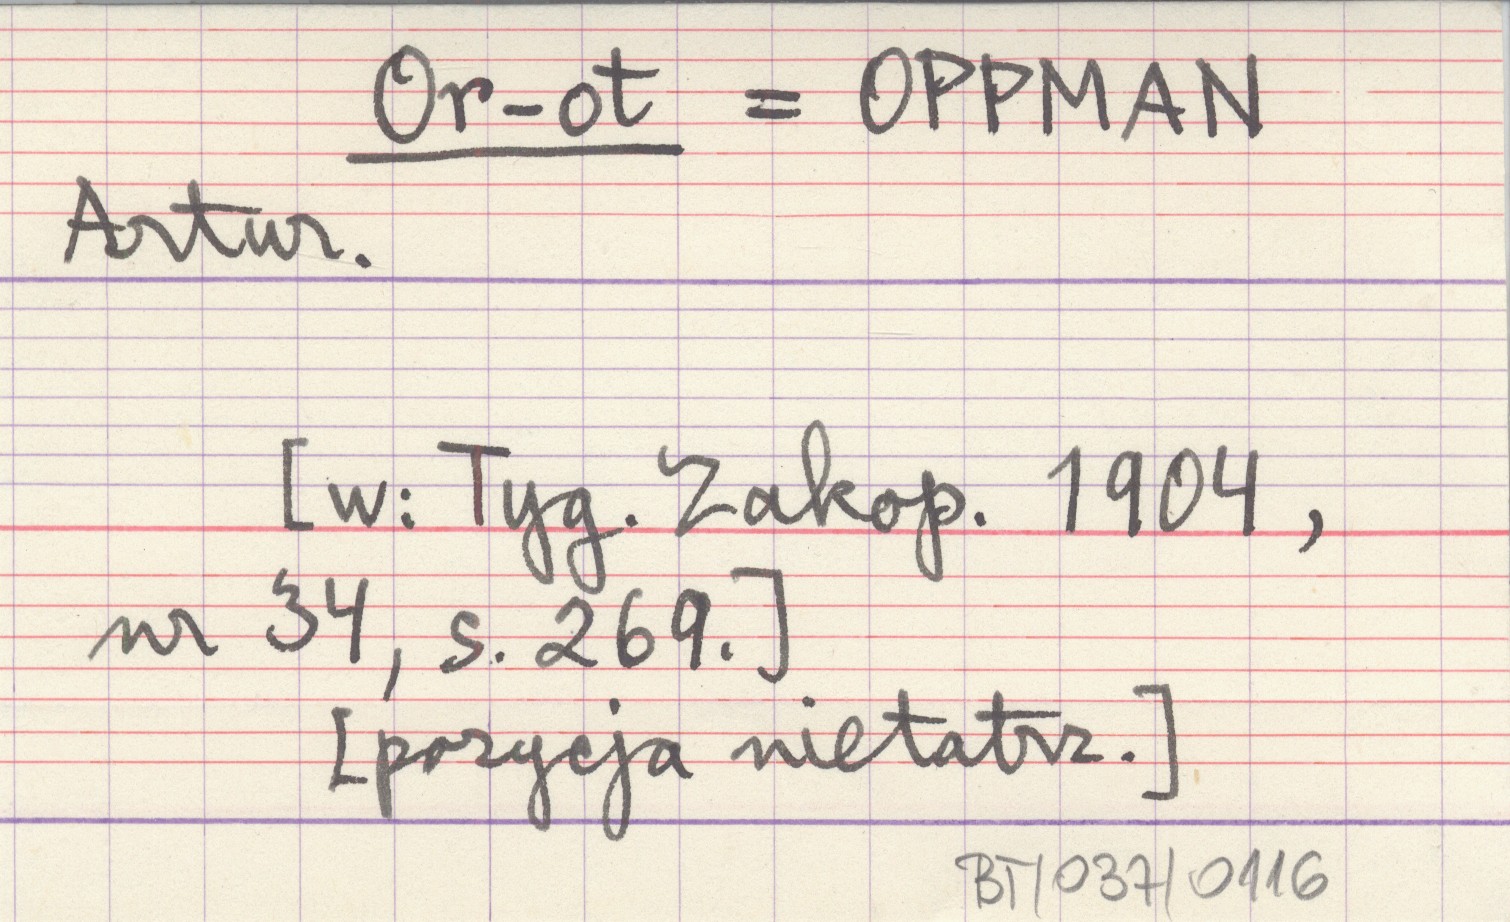 Or-ot = OPPMAN
Artur.
[w: Tyg. Zakop. 1904,
nr 34, s. 269.]
[pozycja nietatrz.]
BT/037/0116